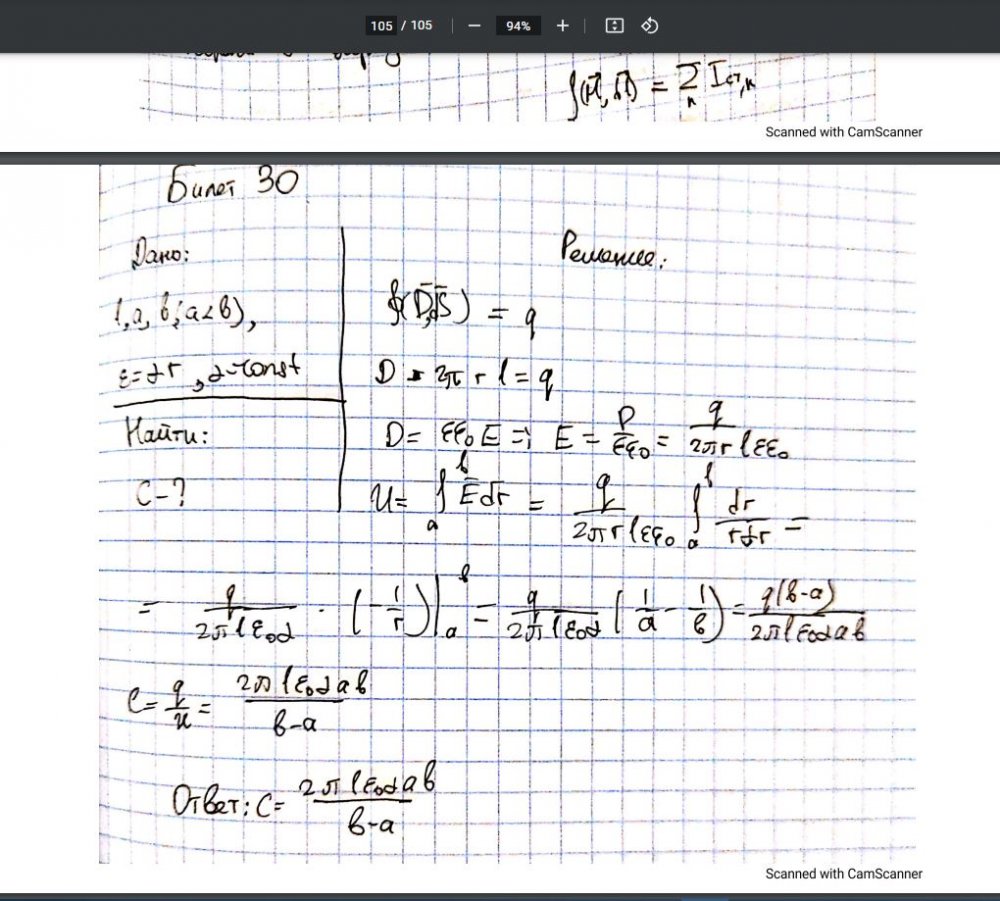 105 / 105 — 94% +
∮(H, dl) = Σ I ст,к
к
Scanned with CamScanner
Билет 30
Дано:
Решение:
l, a, b, (a<b),
∮(D, dS) = q
ε=αr, α-const
D · 2π r l = q
Найти:
D = εε₀E =; E = D/εε₀ = q/2πrlεε₀
C-?
U = ∫ₐᵇ E dr = q/2πrlεε₀ ∫ₐᵇ dr/rαr =
= q/2πlε₀α · (-1/r)|ₐᵇ = q/2πlε₀α (1/a - 1/b) = q(b-a)/2πlε₀αab
C = q/u = 2πlε₀αab/b-a
Ответ: C = 2πlε₀αab/b-a
Scanned with CamScanner